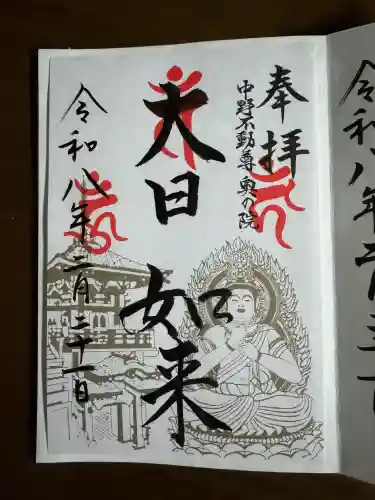 奉拝
中野不動尊奥の院
大日如来
令和八年二月二十一日
令和八年二月二